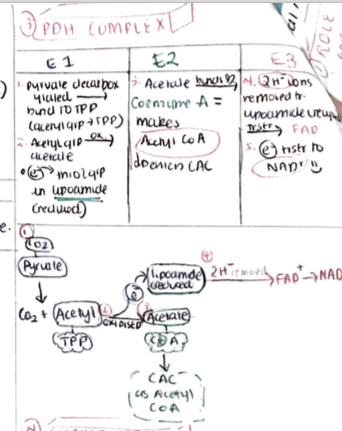 ③ PDH COMPLEX
E1
1. Pyruvate decarbox
ylated →
bind to TPP
(acetyl grp + TPP)
2. Acetyl grp ox →
acetate
• e⁻ → thiol grp
in lipoamide
(reduced)
E2
3. Acetate binds to
Coenzyme A =
makes
Acetyl CoA
CAC
E3
4. 2H⁻ ions
removed fr.
lipoamide
trsfr → FAD
5. e⁻ trsfr to
NAD⁺
ROLE
①
CO2
Pyruvate
CO2 + Acetyl
TPP
②
OXIDISED
e⁻
lipoamide
reduced
③
Acetate
CoA
④
2H⁻ removed → FAD⁺ → NAD
CAC
as Acetyl
CoA